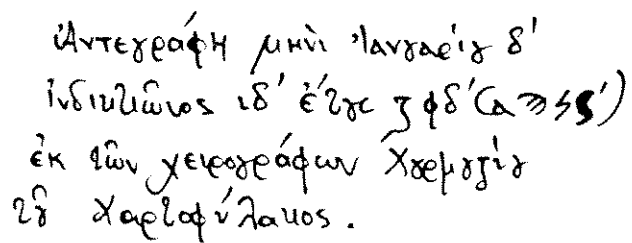 Ἀντεγράφη μηνὶ Ἰανȣαρίȣ δ'
ἰνδικτιῶνος ιδ' ἔτȣς ζφδ' (αϡϟϛ')
ἐκ τῶν χειρογράφων Χȣρμȣζίȣ
τȣ͂ Χαρτοφύλακος.